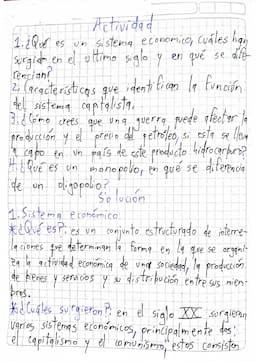 Actividad
1. ¿Qué es un sistema economico, cuáles han
surgido en el ultimo siglo y en qué se dife-
rencian?
2. Características que identifican la función
del sistema capitalista.
3. ¿Cómo crees que una guerra puede afectar la
producción y el precio del petróleo, si esta se lleva
a capo en un país de este producto hidrocarburo?
4. ¿Qué es un monopolio, en qué se diferencia
de un oligopolio?
Solución
1. Sistema económico:
*¿Qué es?: es un conjunto estructurado de interre-
laciones que determinan la forma en la que se organi-
za la actividad económica de una sociedad, la producción
de bienes y servicios y su distribución entre sus miem-
bros.
*¿Cuáles surgieron?: en el siglo XX surgieron
varios sistemas económicos, principalmente dos:
el capitalismo y el comunismo, estos consisten